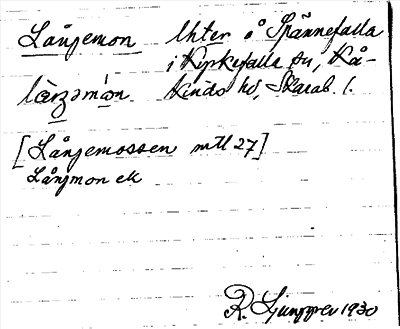 Långemon Uhter å Spännefalla
i Kyrkefalla sn, Kå-
kinds hd, Skarab. l.
[Långemossen mtl 27]
Långmon ek
R. Ljunggren 1930